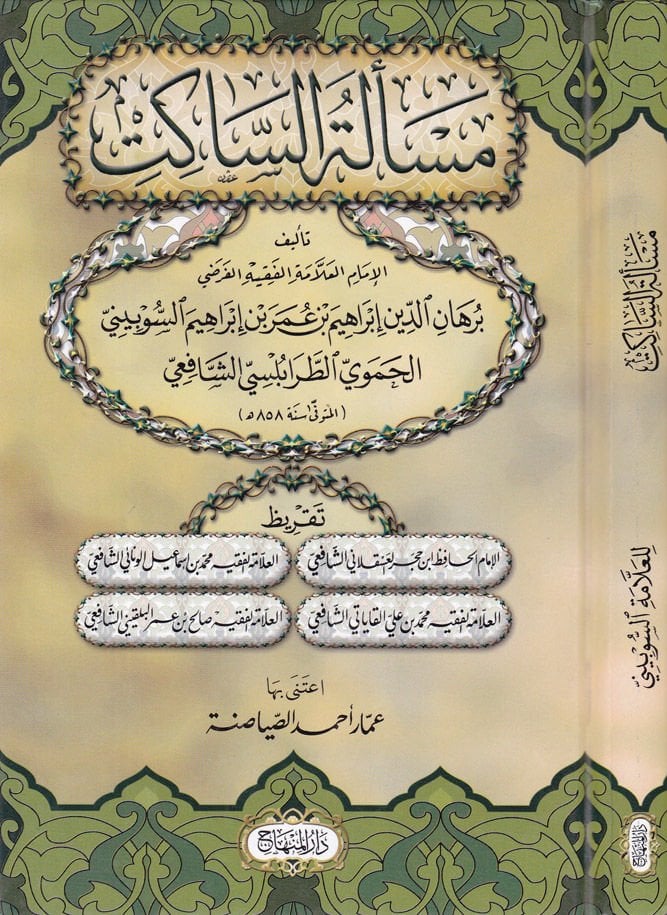 مَسْأَلَةُ السَّاكِتِ
تأليف
الإمام العلّامة الفقيه الفرضي
بُرهَان الدِّين إبراهيم بن عُمَر بن إبراهيم السُّوبينيّ
الحَمَويّ الطَّرابلسيّ الشَّافعيّ
(المتوفّى سنة ٨٥٨ هـ)
تقريظ
الإمام الحافظ ابن حجر العسقلاني الشافعيّ
العلّامة الفقيه محمد بن إسماعيل الونائي الشافعيّ
العلّامة الفقيه محمد بن علي القاياتي الشافعيّ
العلّامة الفقيه صالح بن عمر البلقيني الشافعيّ
اعتنى بها
عمّار أحمد الصّياصنة
دار المنهاج
مَسْأَلَةُ السَّاكِتِ
للعلّامة السُّوبينيّ
دار المنهاج